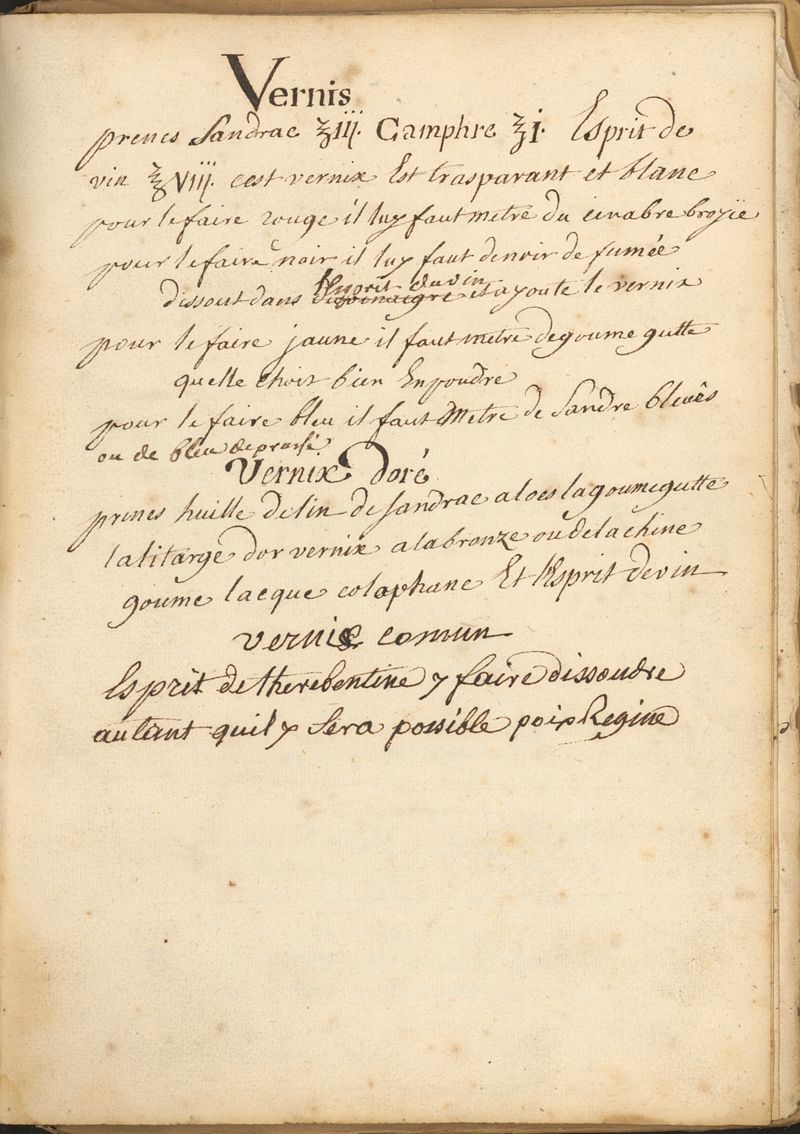 Vernis
prenes Sandrac ℥iij. Camphre ℥j. Esprit de
vin ℥viij. cest vernix Est trasparant et blanc
pour le faire rouge il luy faut metre du cinabre broyie
pour le faire noir il luy faut denoir de fumée
l'Esprit du vin
dissout dans du vinaigre et ayoute le vernix
pour le faire jaune il faut metre de goume gutte
quelle choit bien En poudre
pour le faire bleu il faut Metre de Sandre bleuês
ou de bleu de prusse
Vernix Doré
prenes huille de lin de sandrac aloes la goume gutte
la litarge dor vernix a la bronze ou de la chine
goume lacque colaphane Et l'Esprit de vin
vernix comun
Esprit de therebentine y faire dissoudre
autant quil y Sera possible poix Regine